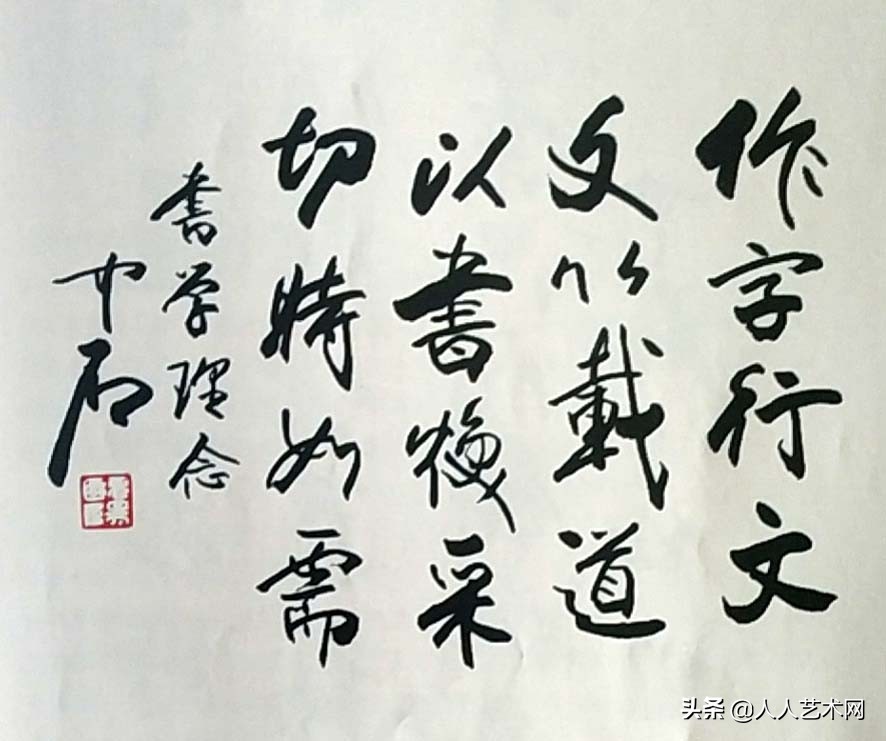 作字行文
文以載道
以書換采
切時如需
書学理念
中石
头条 @人人艺术网